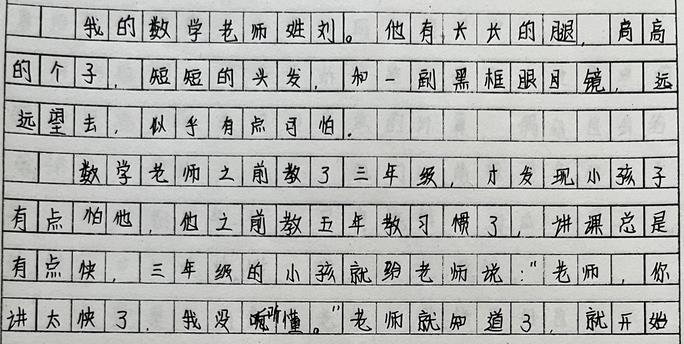 我的数学老师姓刘。他有长长的腿，高高
的个子，短短的头发，和一副黑框眼目镜，远
远望去，似乎有点可怕．
数学老师之前教了三年级，才发现小孩子
有点怕他，他之前教五年教习惯了，讲课总是
有点快，三年级的小孩就给老师说："老师，你
讲太快了，我没听懂。"老师就知道了，就开始